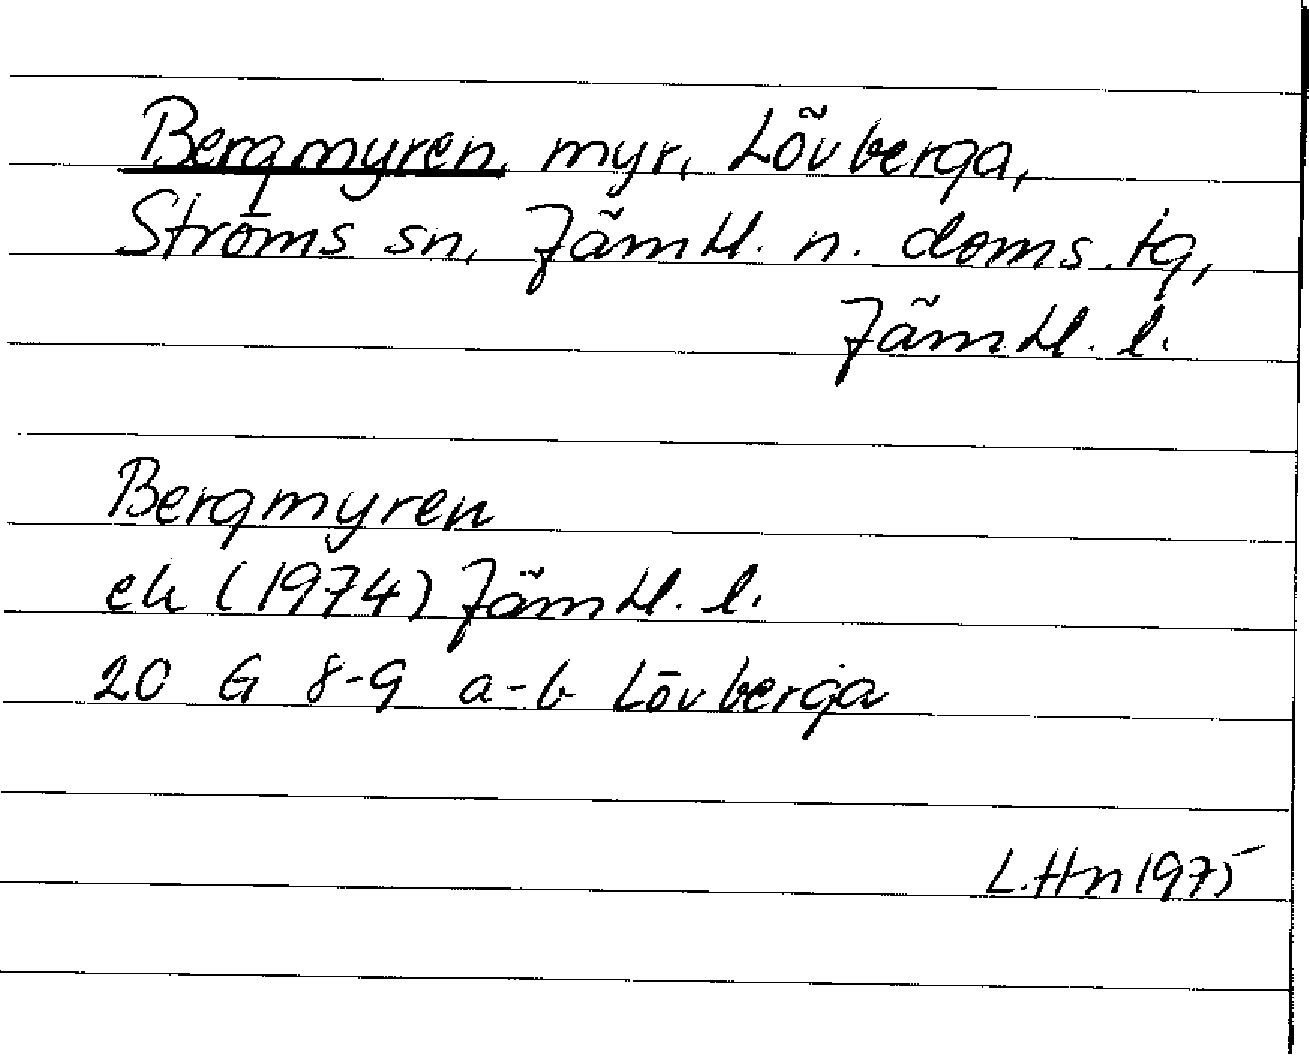 Bergmyren, myr, Lövberga,
Ströms sn, Jämtl. n. doms.tg,
Jämtl. l.
Bergmyren
ek (1974) Jämtl. l.
20 G 8-9 a-b Lövberga
L.Hn 1975